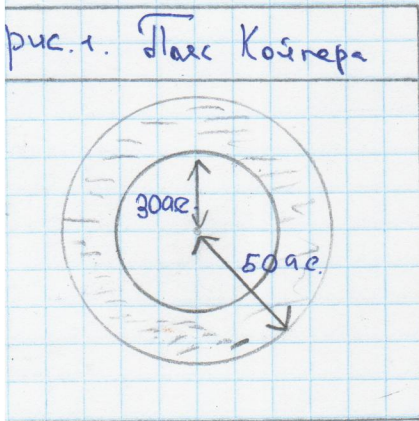 рис. 1. Пояс Койпера
30а.е.
50 а.е.